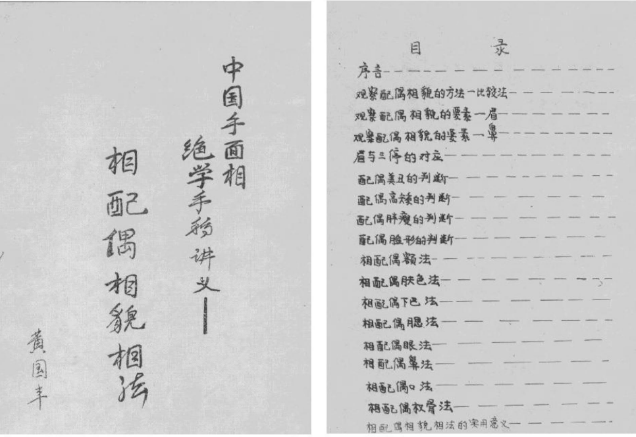 中国手面相
绝学手稿讲义——
相配偶相貌相法
黄国丰
目录
序言
观察配偶相貌的方法一比较法
观察配偶相貌的要素一眉
观察配偶相貌的要素一鼻
眉与三停的对应
配偶美丑的判断
配偶高矮的判断
配偶胖瘦的判断
配偶脸形的判断
相配偶额法
相配偶肤色法
相配偶下巴法
相配偶腮法
相配偶眼法
相配偶鼻法
相配偶口法
相配偶权骨法
相配偶相貌相法的实用意义